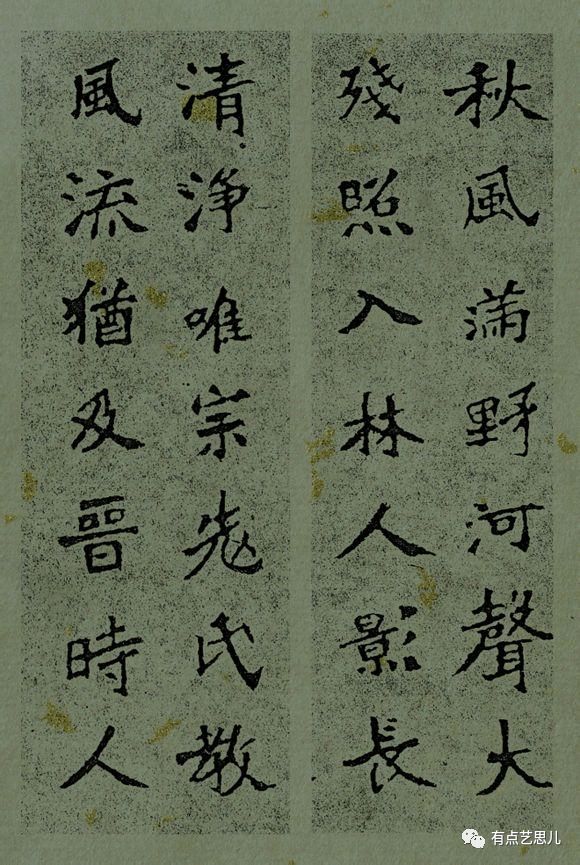 秋風滿野河聲大
殘照入林人影長
清淨唯宗老氏教
風流猶及晉時人
有点艺思儿